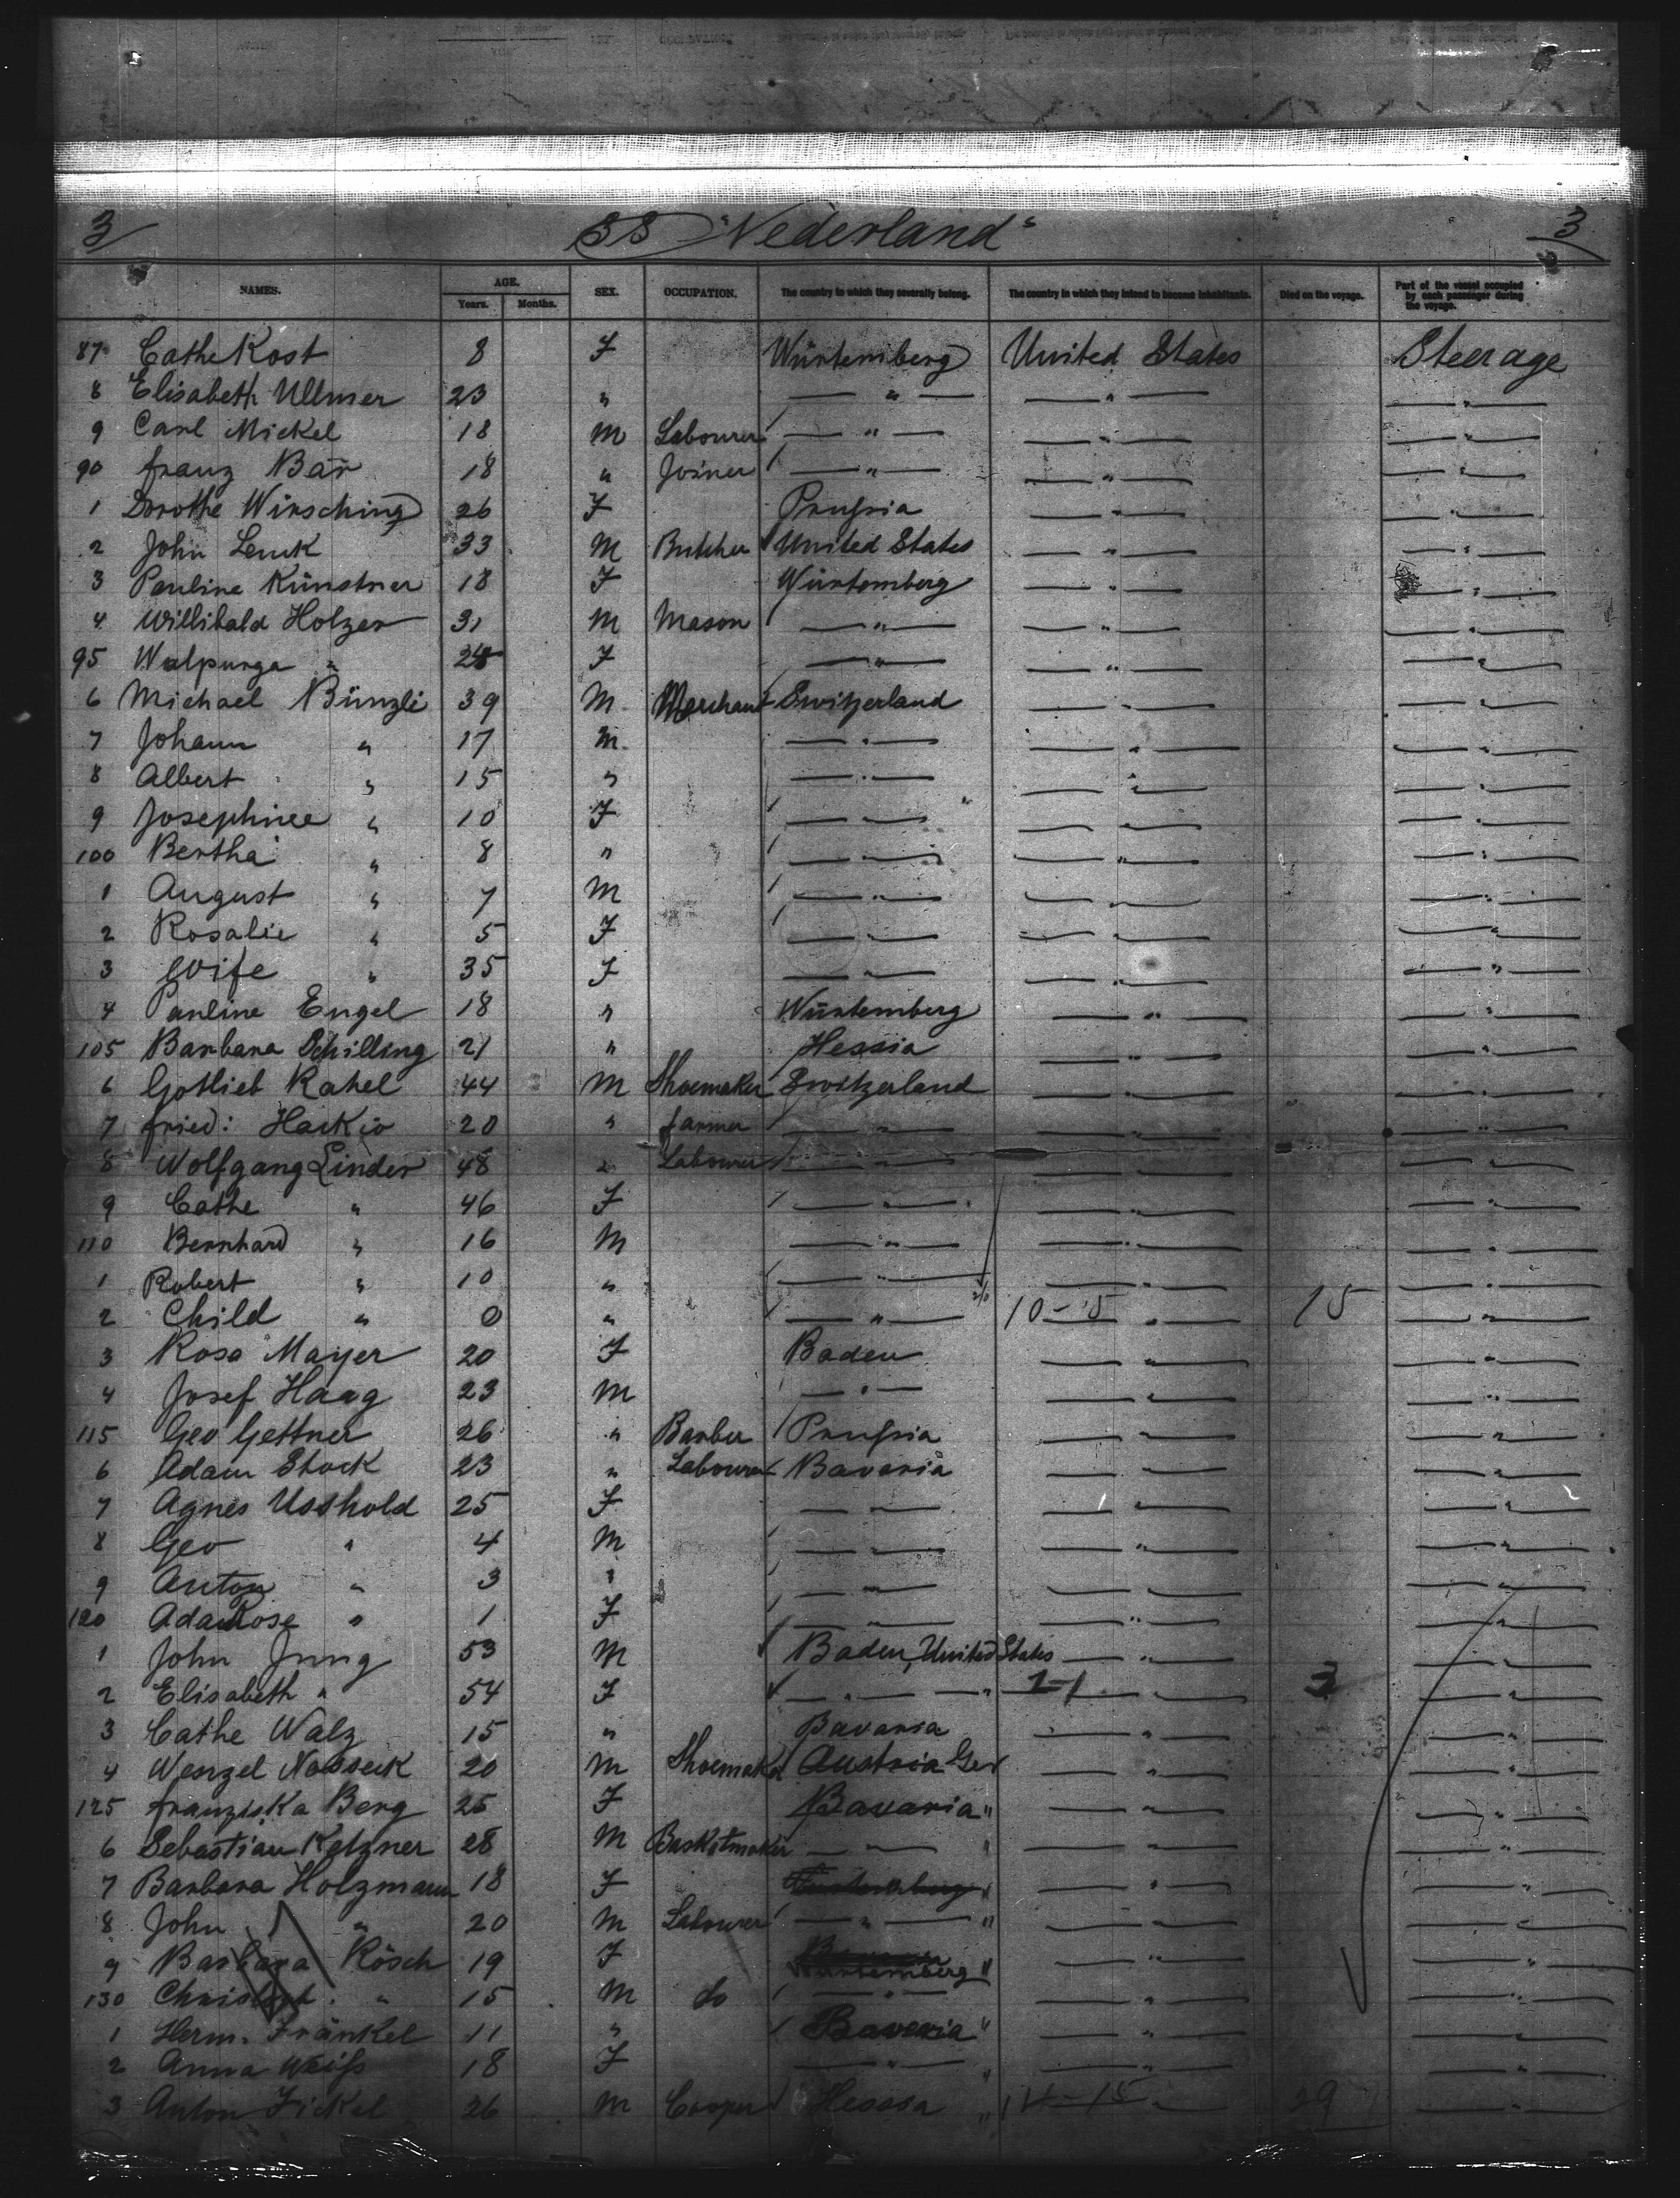 3 SS "Nederland" 3
NAMES. AGE. Years. Months. SEX. OCCUPATION. The country to which they severally belong. The country in which they intend to become inhabitants. Died on the voyage. Part of the vessel occupied by each passenger during the voyage.
87 Cathe Kost 8 F Würtemberg United States Steerage
8 Elisabeth Ullmer 23 " — " — — " — — " —
9 Carl Mickel 18 M Labourer — " — — " — — " —
90 Franz Bär 18 " Joiner — " — — " — — " —
1 Dorothe Wirsching 26 F Prussia — " — — " —
2 John Lenk 33 M Butcher United States — " — — " —
3 Pauline Künstner 18 F Würtemberg — " — — " —
4 Willibald Holzer 31 M Mason — " — — " — — " —
95 Walpurga " F — " — — " — — " —
6 Michael Bünzli 39 M Merchant Switzerland — " — — " —
7 Johann " 17 M — " — — " — — " —
8 Albert " 15 " — " — — " — — " —
9 Josephine " 10 F — " — — " — — " —
100 Bertha " 8 " — " — — " — — " —
1 August " 7 M — " — — " — — " —
2 Rosalie " 5 F — " — — " — — " —
3 Wife " 35 F — " — — " — — " —
4 Pauline Engel 18 " Würtemberg — " — — " —
105 Barbara Schilling 21 " Hessia — " — — " —
6 Gottlieb Rahel 44 M Shoemaker Switzerland — " — — " —
7 Fried: 20 " Farmer — " — — " — — " —
8 Wolfgang Linder 48 " Labourer — " — — " — — " —
9 Cathe " 46 F — " — — " — — " —
110 Bernhard " 16 M — " — — " — — " —
1 Robert " 10 " — " — — " — — " —
2 Child " 0 " — " — 10-5 — " — 15 — " —
3 Rosa Mayer 20 F Baden — " — — " —
4 Josef Haag 23 M — " — — " — — " —
115 Geo Gettner 26 " Barber Prussia — " — — " —
6 Adam Stock 23 " Labourer Bavaria — " — — " —
7 Agnes Usshold 25 F — " — — " — — " —
8 Geo " 4 M — " — — " — — " —
9 Anton " 3 " — " — — " — — " —
120 Rose " 1 F — " — — " — — " —
1 John Jung 53 M Baden, United States — " — — " —
2 Elisabeth " 54 F — " — " 2-1 — " — 3 — " —
3 Cathe Walz 15 " Bavaria — " — — " —
4 Wenzel 20 M Shoemaker Austria Ger — " — — " —
125 Franziska Berg 25 F Bavaria " — " — — " —
6 Sebastian Kelzner 28 M Basketmaker — " — " — " — — " —
7 Barbara Holzmann 18 F Würtemberg " — " — — " —
8 John " 20 M Labourer — " — " — " — — " —
9 Barbara Rösch 19 F Würtemberg " — " — — " —
130 " 15 M do — " — — " — — " —
1 Herm. Fränkel 11 " Bavaria " — " — — " —
2 Anna Weiss 18 F — " — " — " — — " —
3 Anton Fickel 26 M Cooper Hessia " 14-15 — " — 29 — " —